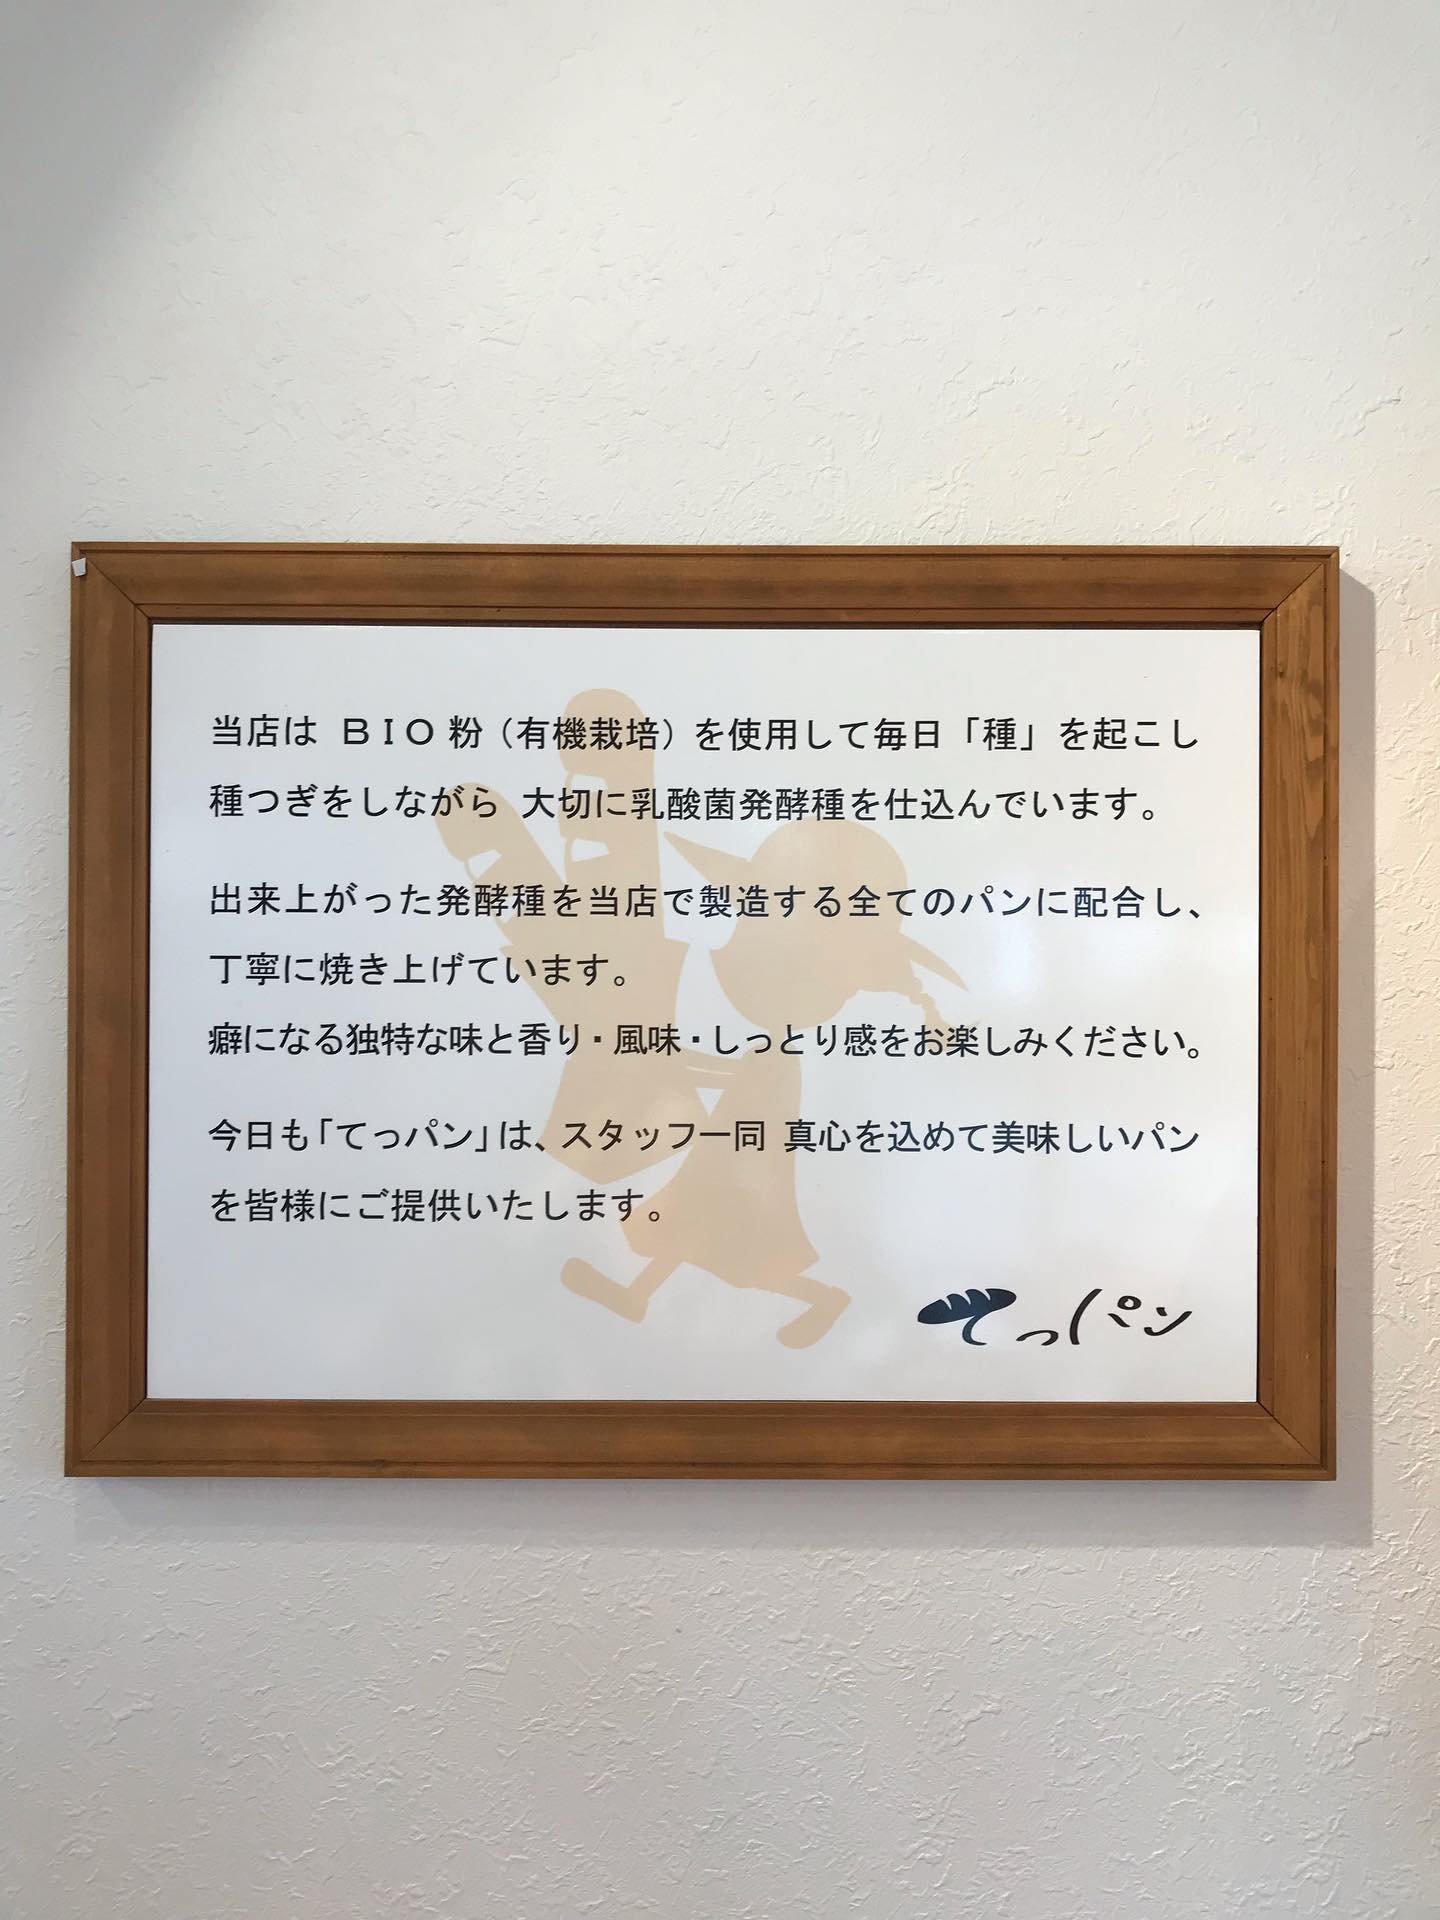 当店は BIO粉（有機栽培）を使用して毎日「種」を起こし
種つぎをしながら 大切に乳酸菌発酵種を仕込んでいます。
出来上がった発酵種を当店で製造する全てのパンに配合し、
丁寧に焼き上げています。
癖になる独特な味と香り・風味・しっとり感をお楽しみください。
今日も「てっパン」は、スタッフ一同 真心を込めて美味しいパン
を皆様にご提供いたします。
てっパン